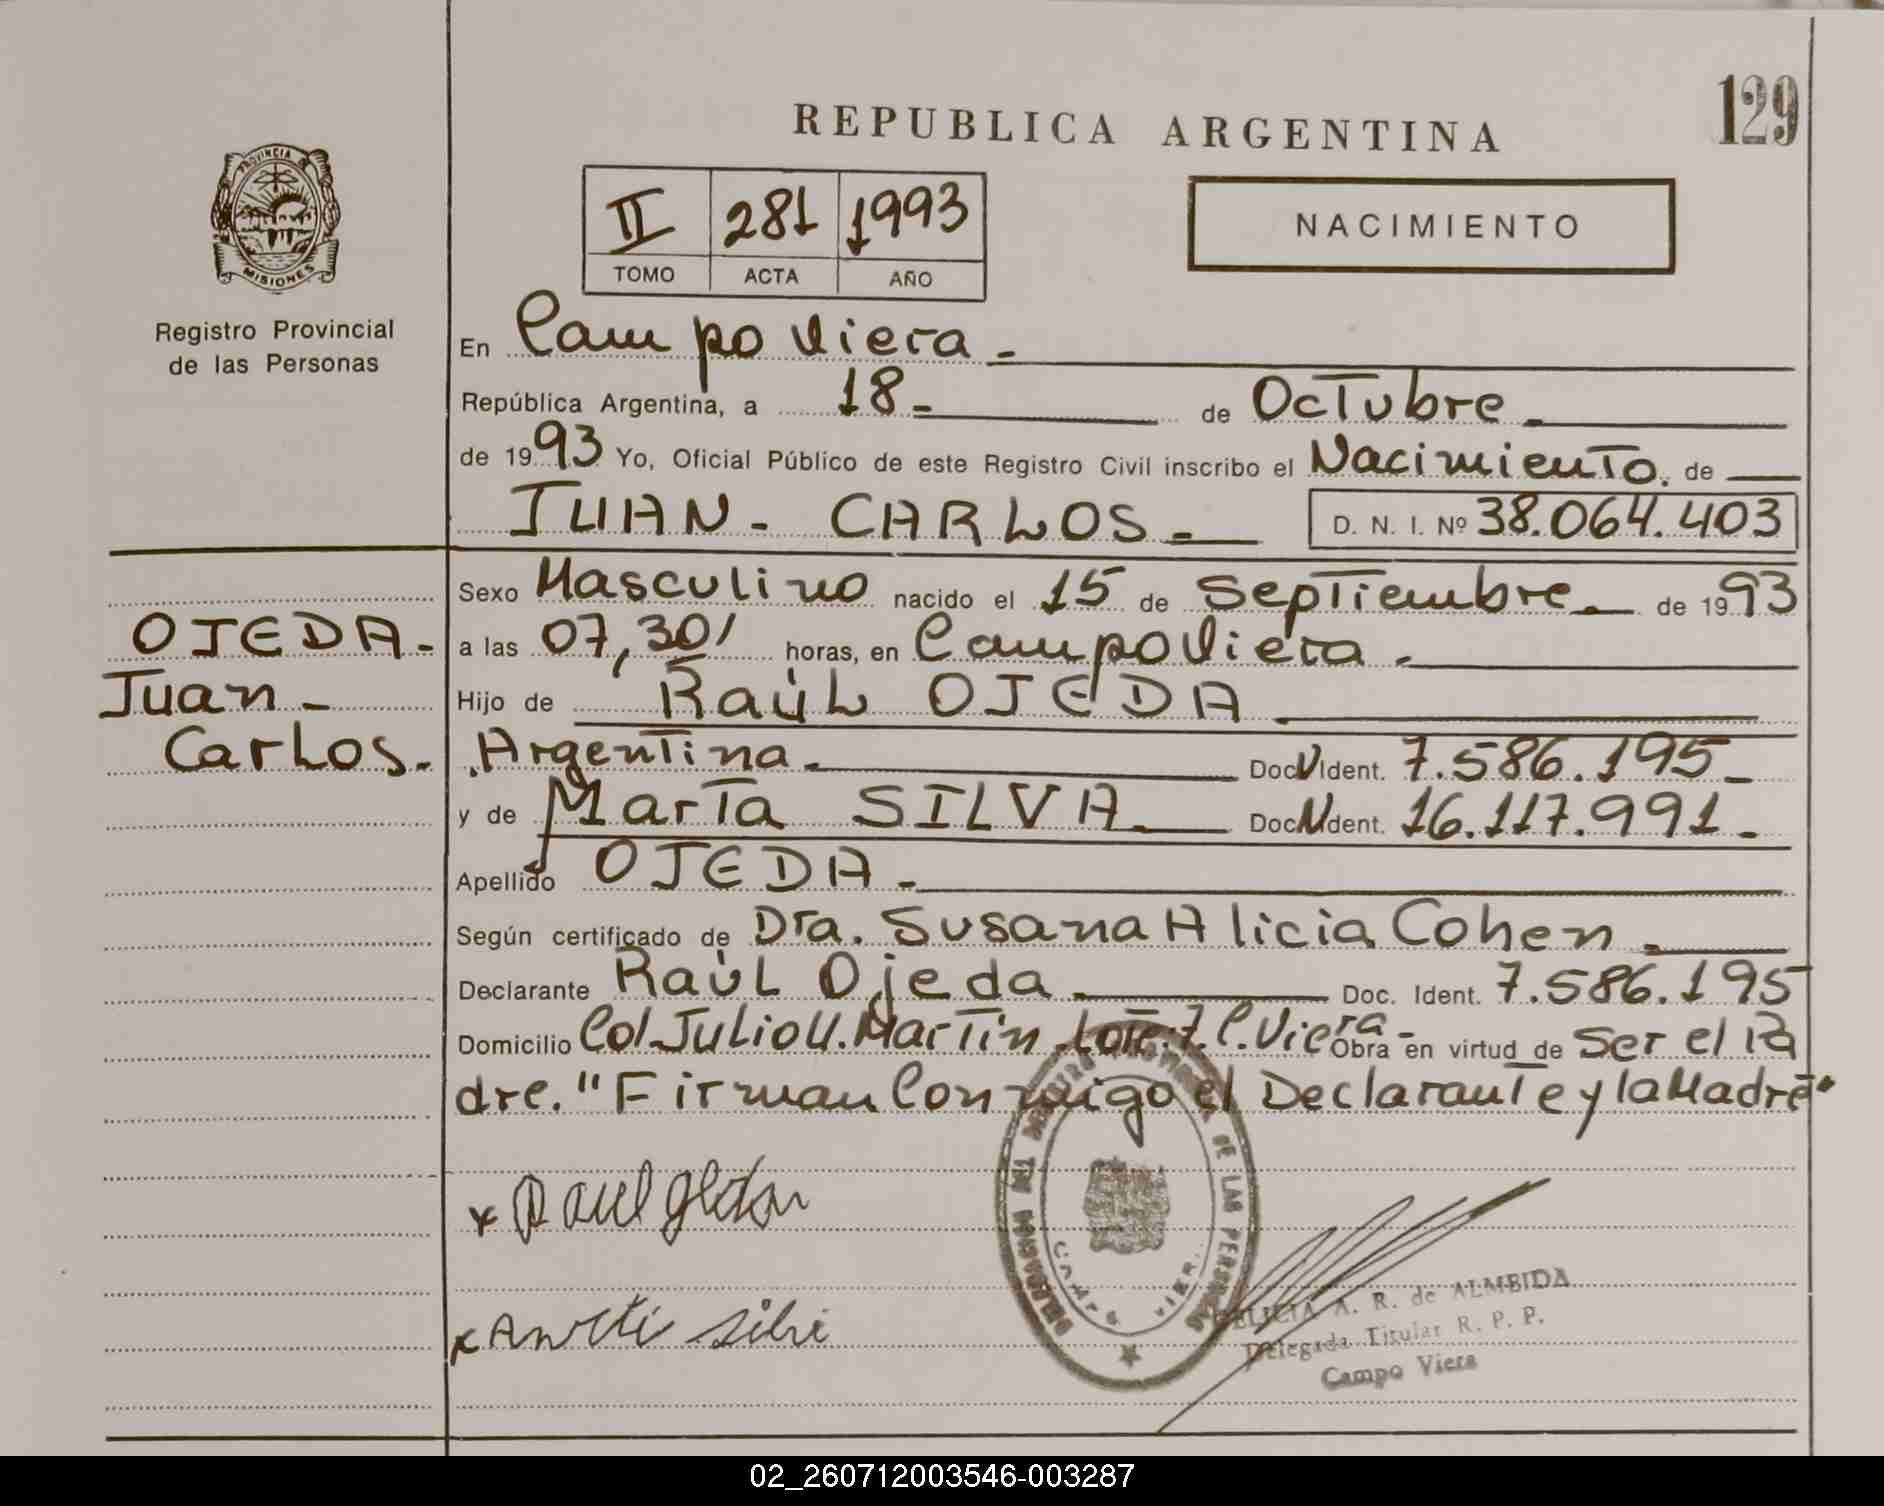 129
REPUBLICA ARGENTINA
PROVINCIA DE
MISIONES
Registro Provincial
de las Personas
II 281 1993
TOMO ACTA AÑO
NACIMIENTO
En Campo Viera -
República Argentina, a 18 - de Octubre -
de 1993 Yo, Oficial Público de este Registro Civil inscribo el Nacimiento. de
JUAN - CARLOS - D. N. I. Nº 38.064.403
OJEDA -
Juan -
Carlos -
Sexo Masculino nacido el 15 de Septiembre - de 1993
a las 07,30' horas, en Campo Viera -
Hijo de Raúl OJEDA
Argentina - Doc. Ident. 7.586.195 -
y de Marta SILVA - Doc. Ident. 16.117.991 -
Apellido OJEDA -
Según certificado de Dra. Susana Alicia Cohen -
Declarante Raúl Ojeda - Doc. Ident. 7.586.195
Domicilio Col. Julio U. Martin. Lote: 7. C. Viera - Obra en virtud de Ser el Pa
dre. "Firman Conmigo el Declarante y la Madre"
x Raul
x
DE LAS PERSONAS
CAMPO VIERA
FELICIA A. R. de ALMEIDA
Delegada Titular R. P. P.
Campo Viera
02_260712003546-003287